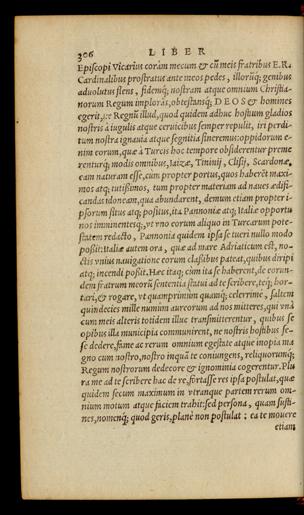 306 LIBER
Episcopi Vicarius coràm mecum & cũ meis fratribus E.R.
Cardinalibus prostratus ante meos pedes, illorũq; genibus
aduolutus flens, fidemq; nostram atque omnium Christia-
norum Regum implorãs, obtestansq; DEOS & homines
egerit, ne Regnũ illud, quod quidem adhuc hostium gladios
nostris à iugulis atque ceruicibus semper repulit, iri perdi-
tum nostra ignauia atque segnitia sineremus: oppidorum e-
nim eorum, quæ à Turcis hoc tempore obsiderentur preme
renturq; modis omnibus, Iaizæ, Tininij, Clisij, Scardonæ,
eam naturam esse, cùm propter portus, quos haberẽt maxi-
mos atq; tutißimos, tum propter materiam ad naues ædifi-
candas idoneam, qua abundarent, demum etiam propter i-
psorum situs atq; positus, ita Pannoniæ atq; Italiæ opportu
nos imminentesq;, vt vno eorum aliquo in Turcarum pote-
statem redacto, Pannonia quidem ipsa se tueri nullo modo
poßit: Italiæ autem ora, quæ ad mare Adriaticum est, no-
ctis vnius nauigatione eorum claßibus pateat, quibus diripi
atq; incendi poßit. Hæc itaq; cùm ita se haberent, de eorun-
dem fratrum meorũ sententia statui ad te scribere, teq; hor-
tari, & rogare, vt quamprimùm quamq; celerrimè, saltem
quindecim mille nummûm aureorum ad nos mitteres, qui vnà
cum meis alteris totidem illuc transmitterentur, quibus se
opibus illa municipia communirent, ne nostris hostibus se-
se dedere, fame ac rerum omnium egestate atque inopia ma
gno cum nostro, nostro inquã te coniungens, reliquorumq;
Regum nostrorum dedecore & ignominia cogerentur. Plu
ra me ad te scribere hac de re, fortasse res ipsa postulat, quæ
quidem secum maximum in vtranque partem rerum om-
nium motum atque faciem trahit: sed persona, quam susti-
nes, nomenq; quod geris, planè non postulat: ea te mouere
etiam